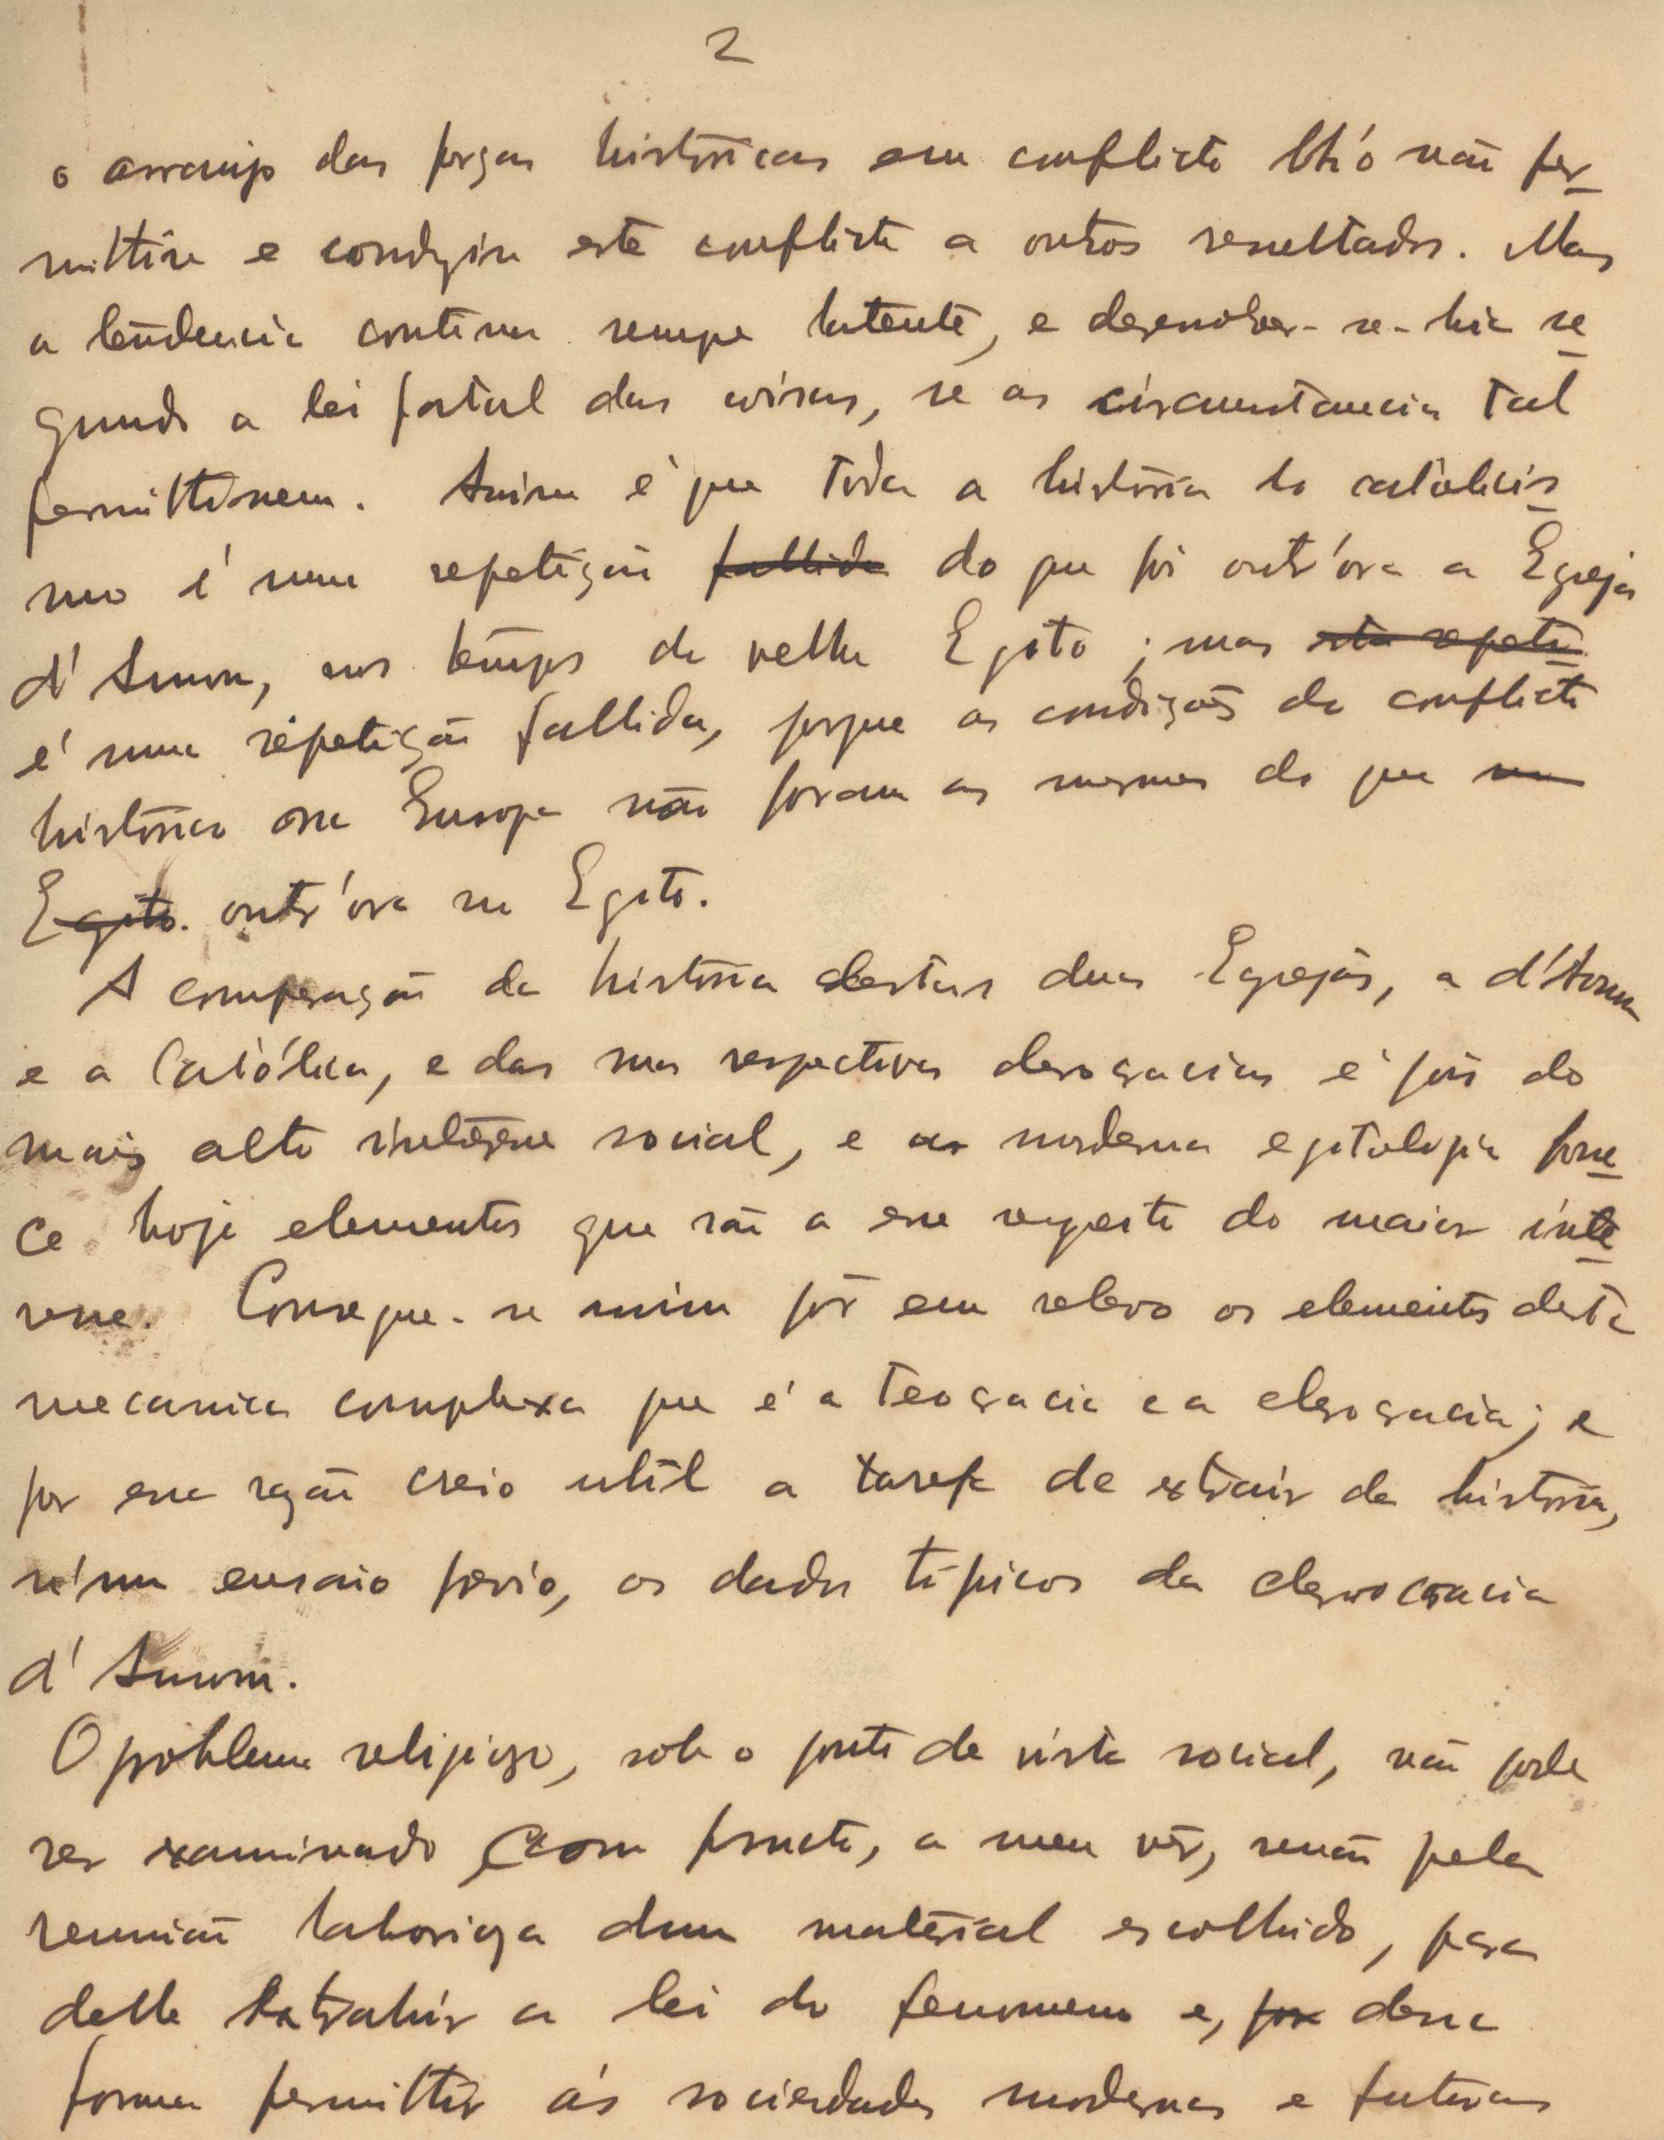 2
o arranjo das forças historicas em conflicto lh'o não per-
mittiu e conduziu este conflicto a outros resultados. Mas
a tendencia continua sempre latente, e desenvolver-se-hia se-
gundo a lei fatal das coisas, se as circumstancia tal
permittissem. Assim é que toda a historia do catolicis-
mo é uma repetição fallida do que foi outr'ora a Egreja
d'Amon, nos tempos do velho Egito; mas esta repeti-
é uma repetição fallida, porque as condições do conflicto
historico na Europa não foram as mesmas do que no
Egito. outr'ora no Egito.
A comparação da historia destas duas Egrejas, a d'Amon
e a Católica, e das suas respectivas clerocracias é pois do
mais alto interesse social, e a moderna egitologia forne-
ce hoje elementos que são a esse respeito do maior inte-
resse. Consegue-se assim pôr em relevo os elementos desta
mecanica complexa que é a teocracia e a clerocracia; e
por essa razão creio util a tarefa de extrair da historia,
n'um ensaio previo, os dados típicos da clerocracia
d'Amon.
O problema religioso, sob o ponto de vista social, não pode
ser examinado com fructo, a meu vêr, senão pela
reunião laboriosa dum material escolhido, para
delle extrahir a lei do fenomeno e, por dessa
forma permittir ás sociedades modernas e futuras